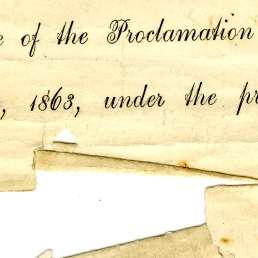 of the Proclamation
, 1863, under the